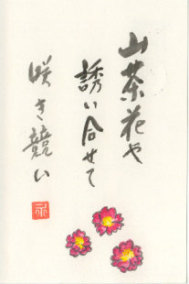 山茶花や
誘い合せて
咲き競い